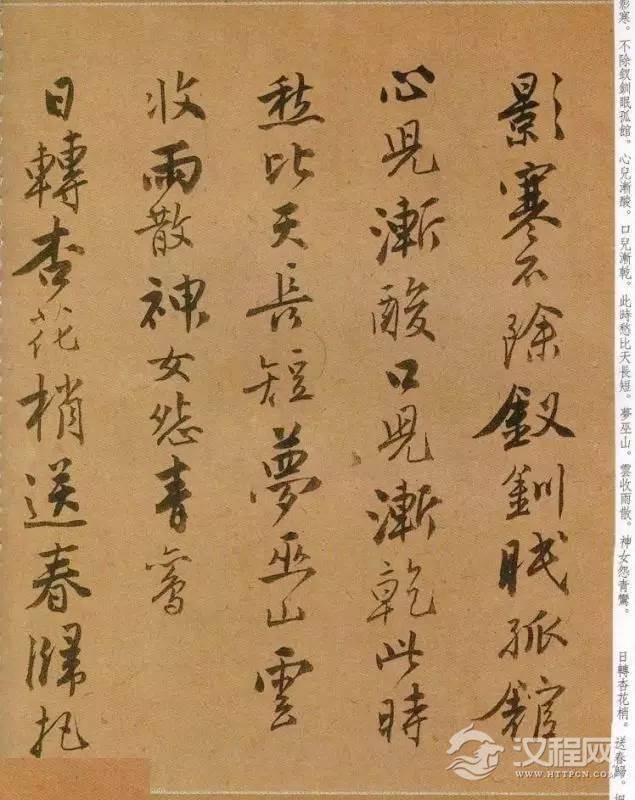 影寒不除釵釧眠孤館
心兒漸酸口兒漸乾此時
愁比天長短夢巫山雲
收雨散神女怨青鸞
日轉杏花梢送春歸把
影寒。不除釵釧眠孤館。心兒漸酸。口兒漸乾。此時愁比天長短。夢巫山。雲收雨散。神女怨青鸞。 日轉杏花梢。送春歸。把
汉程网
WWW.HTTPCN.COM